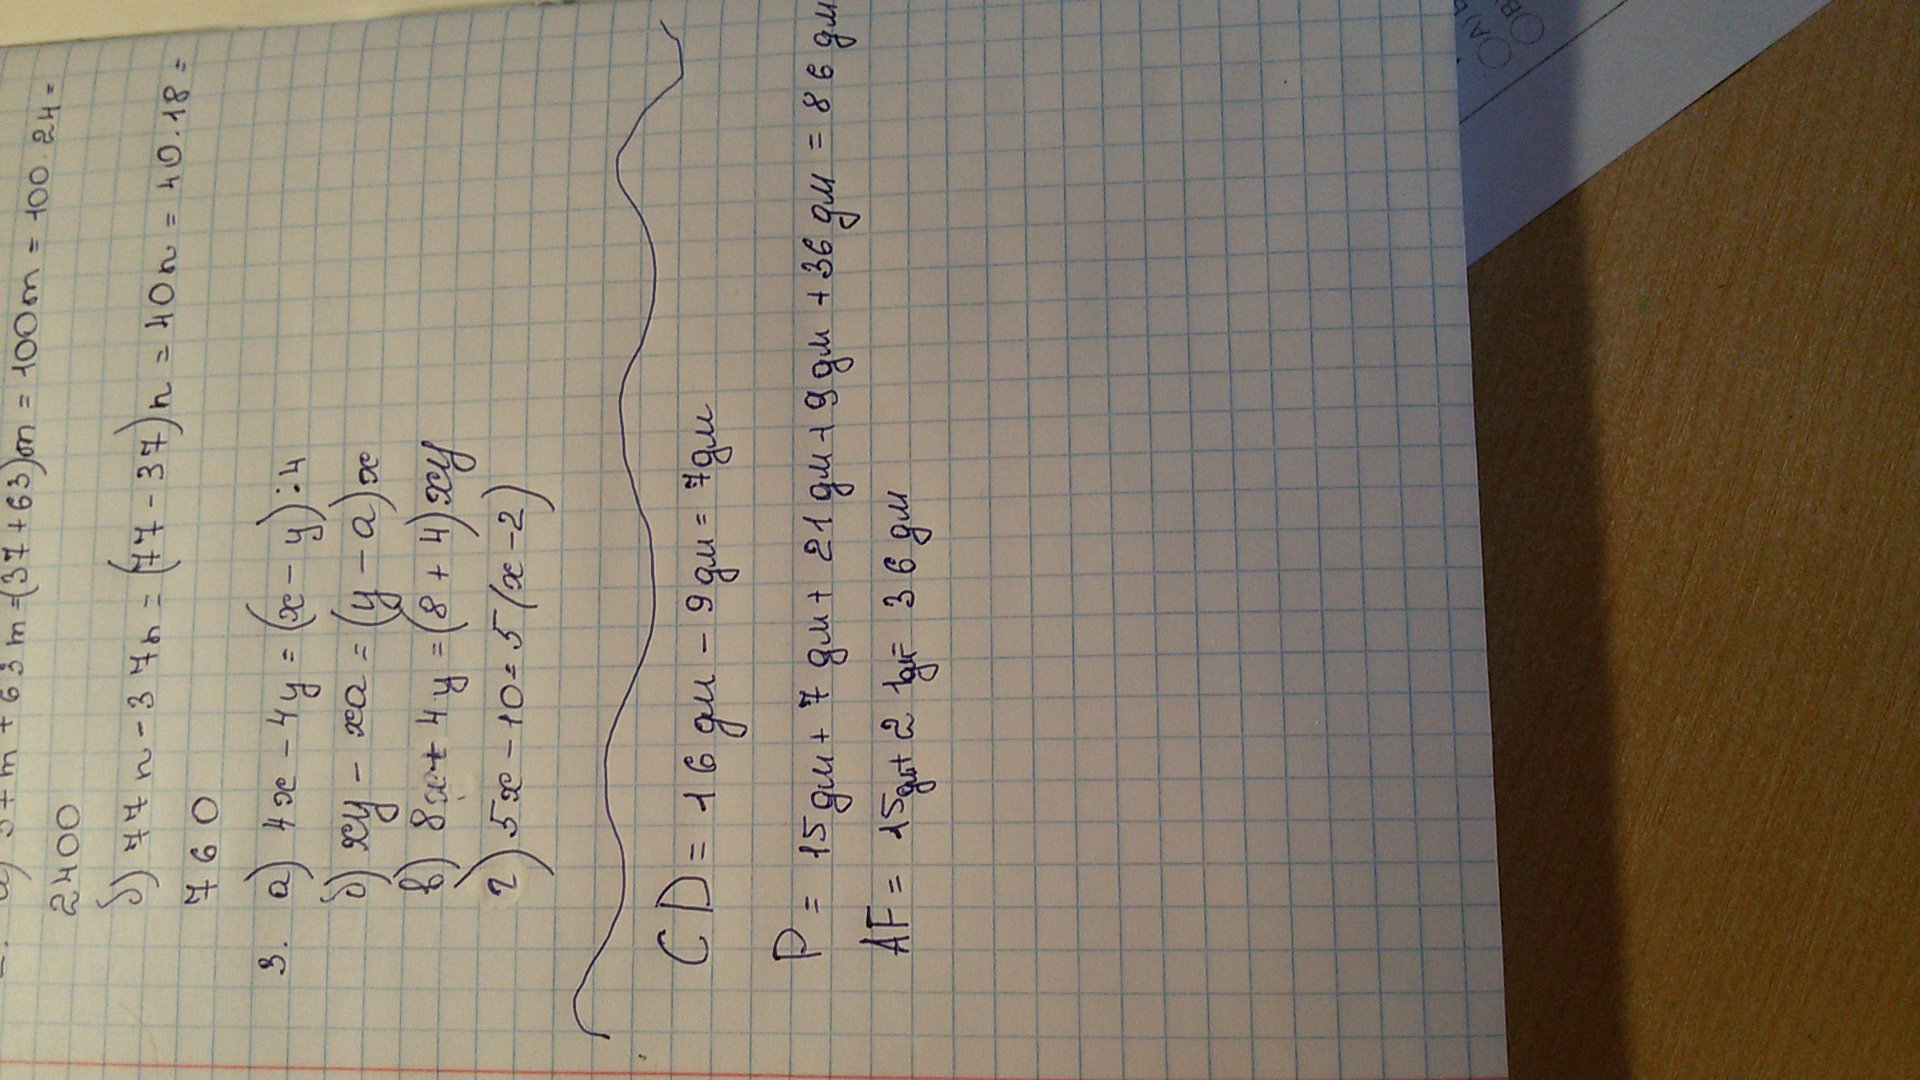 37m + 63m = (37 + 63)m = 100m = 100 · 24 =
2400
б) 77n - 37n = (77 - 37)n = 40n = 40 · 18 =
760
3. а) 4x - 4y = (x - y) : 4
б) xy - xa = (y - a)x
в) 8x + 4y = (8 + 4)xy
г) 5x - 10 = 5(x - 2)
CD = 16 дм - 9 дм = 7 дм
P = 15 дм + 7 дм + 21 дм + 9 дм + 36 дм = 86 дм
AF = 15 дм + 21 дм = 36 дм